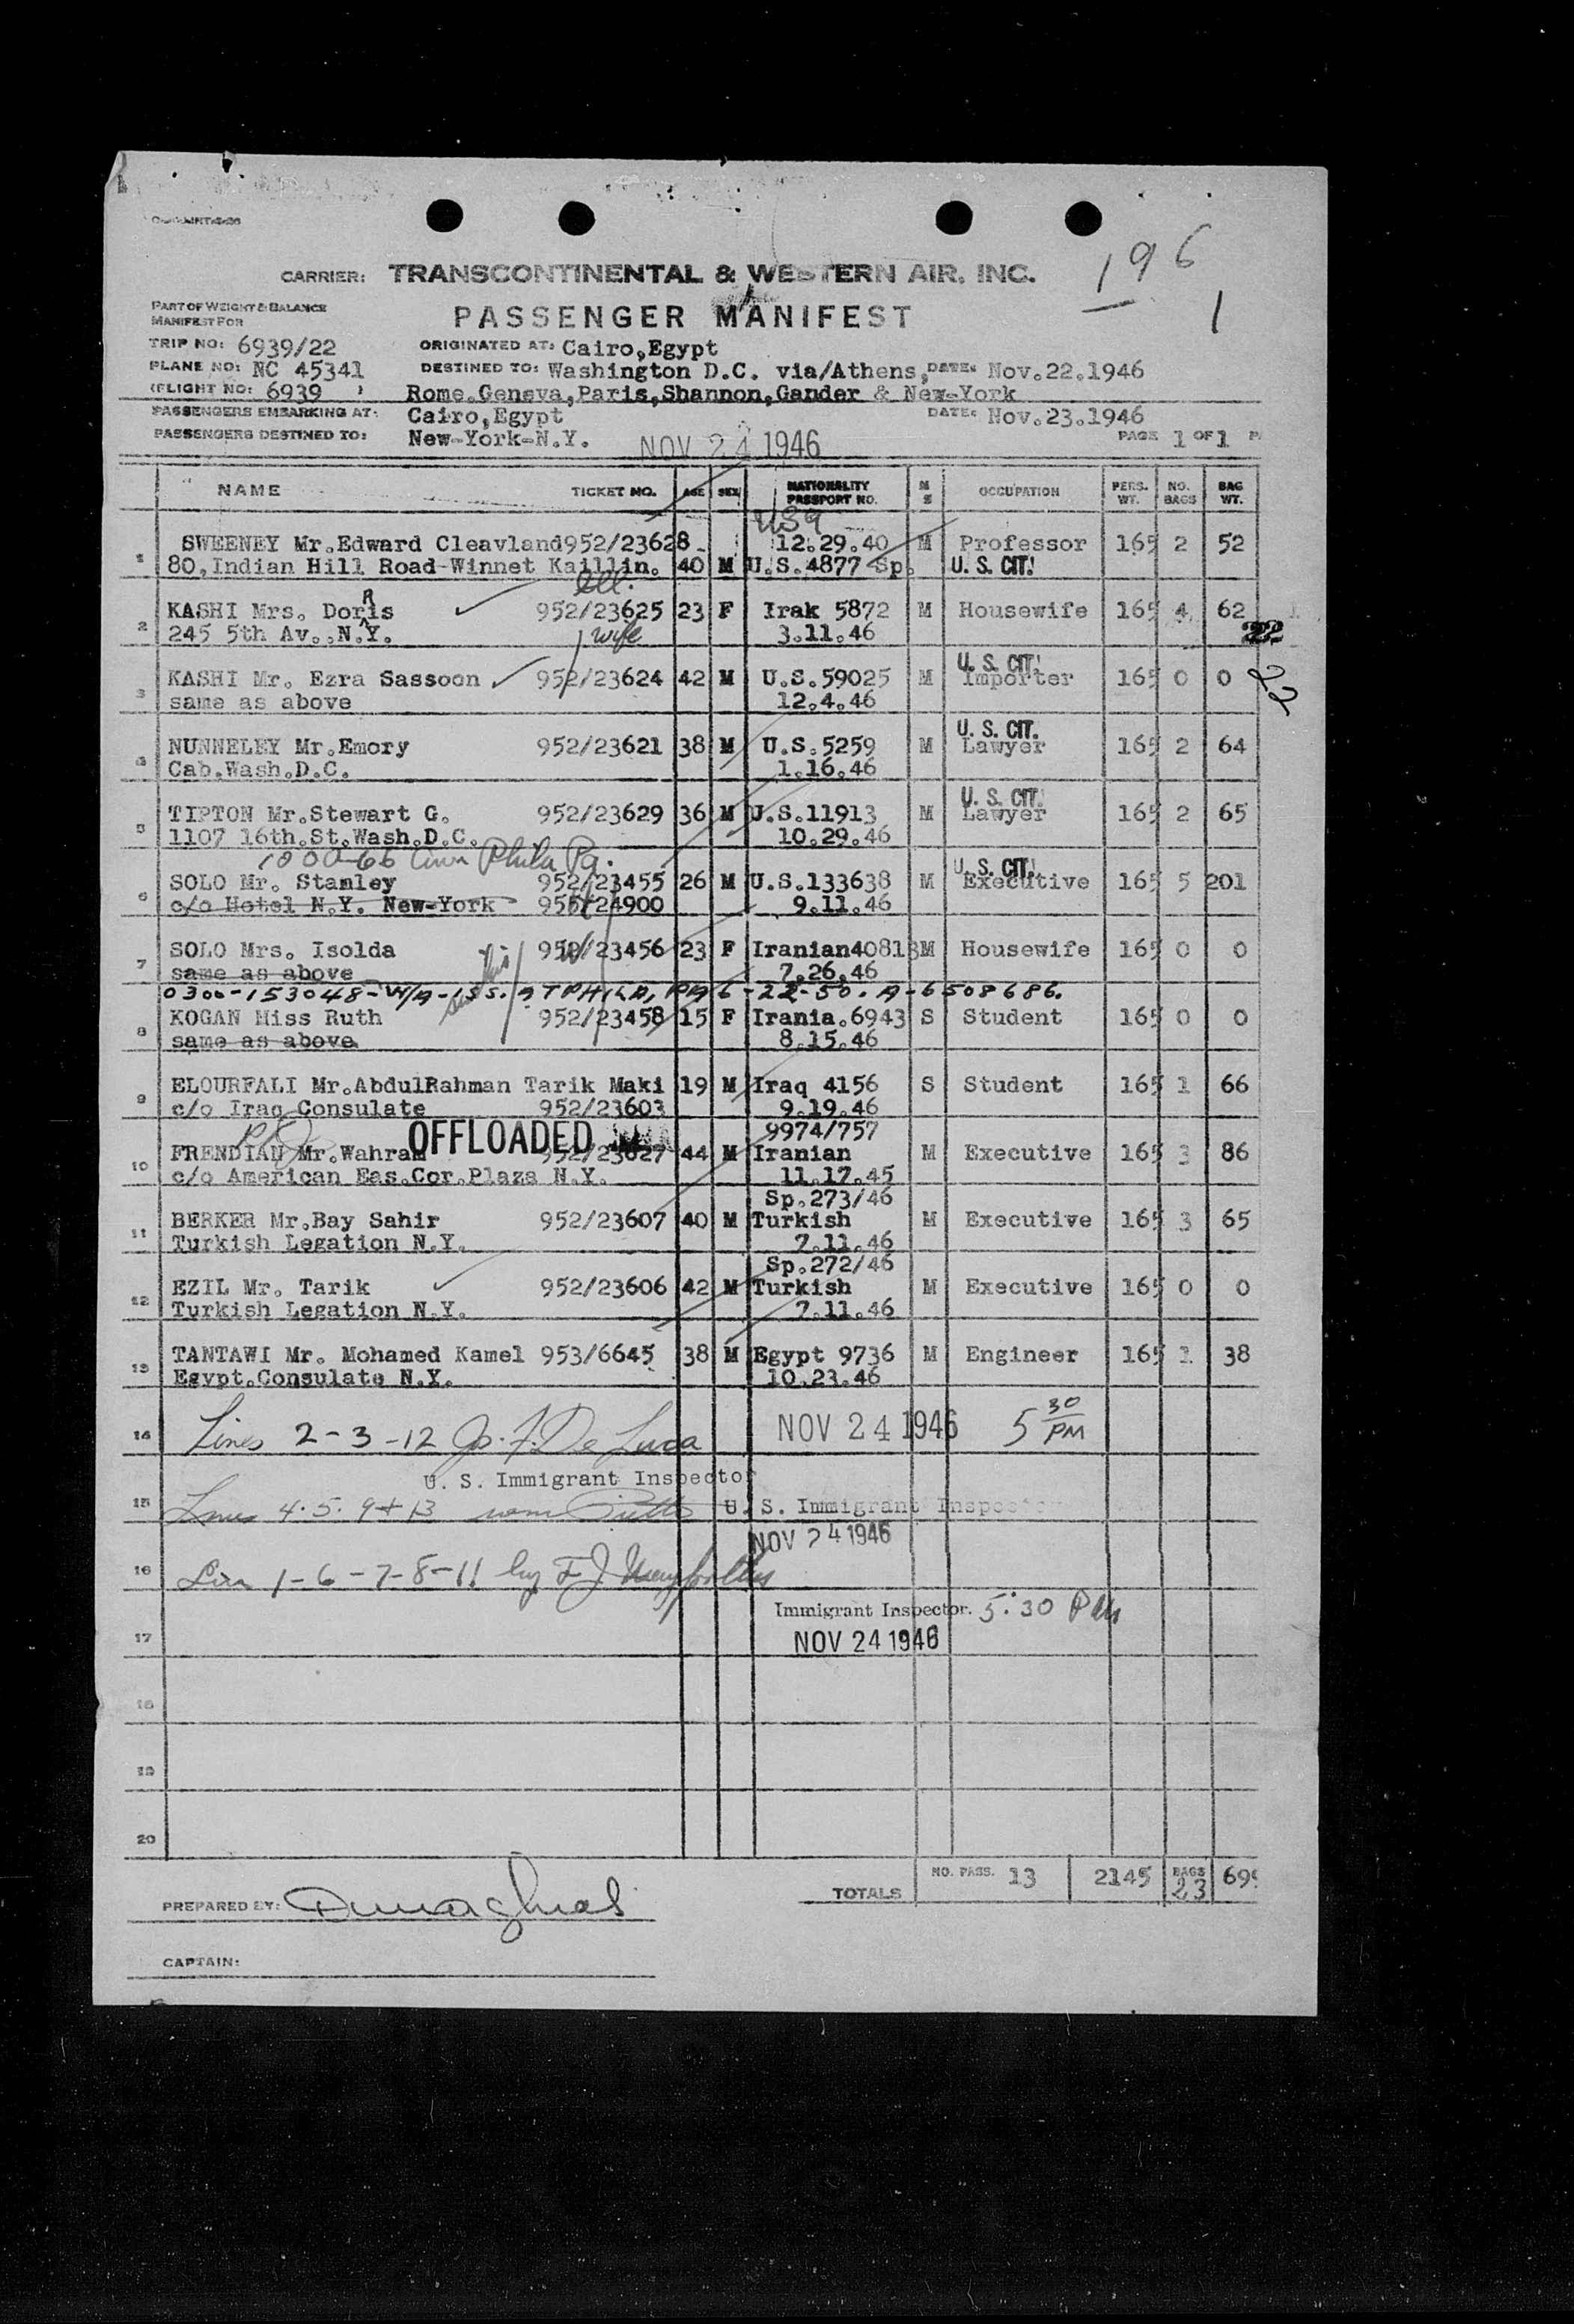 CARRIER: TRANSCONTINENTAL & WESTERN AIR, INC.
196
1
PART OF WEIGHT & BALANCE
MANIFEST FOR
PASSENGER MANIFEST
TRIP NO: 6939/22 ORIGINATED AT: Cairo,Egypt
PLANE NO: NC 45341 DESTINED TO: Washington D.C. via/Athens, DATE: Nov.22.1946
(FLIGHT NO: 6939 ) Rome.Geneva,Paris,Shannon,Gander & New-York
PASSENGERS EMBARKING AT: Cairo,Egypt DATE: Nov.23.1946
PASSENGERS DESTINED TO: New-York-N.Y. NOV 24 1946 PAGE 1 OF 1 P
NAME TICKET NO. AGE SEX NATIONALITY PASSPORT NO. M S OCCUPATION PERS. WT. NO. BAGS BAG WT.
USA
1 SWEENEY Mr.Edward Cleavland 952/23628 12.29.40 M Professor 165 2 52
80,Indian Hill Road-Winnet Kaillin. 40 M U.S.4877 Sp. U. S. CIT.
Ill.
R
2 KASHI Mrs. Doris 952/23625 23 F Irak 5872 M Housewife 165 4 62
245 5th Av..N.Y. wife 3.11.46
22
U. S. CIT.
3 KASHI Mr. Ezra Sassoon 952/23624 42 M U.S.59025 M Importer 165 0 0
same as above 12.4.46
U. S. CIT.
4 NUNNELEY Mr.Emory 952/23621 38 M U.S.5259 M Lawyer 165 2 64
Cab.Wash.D.C. 1.16.46
U. S. CIT.
5 TIPTON Mr.Stewart G. 952/23629 36 M U.S.11913 M Lawyer 165 2 65
1107 16th.St.Wash.D.C. 10.29.46
Phila Pa.
U. S. CIT.
6 SOLO Mr. Stanley 952/23455 26 M U.S.133638 M Executive 165 5 201
c/o Hotel N.Y. New-York 24900 9.11.46
7 SOLO Mrs. Isolda 952/23456 23 F Iranian40818 M Housewife 165 0 0
same as above 7.26.46
0300-153048-W/A-ISS. AT PHILA, PA 6-22-50. A-6508686.
8 KOGAN Miss Ruth 952/23458 15 F Irania.6943 S Student 165 0 0
same as above 8.15.46
9 ELOURFALI Mr.AbdulRahman Tarik Maki 19 M Iraq 4156 S Student 165 1 66
c/o Iraq Consulate 952/23603 9.19.46
OFFLOADED 9974/757
10 FRENDIAN Mr.Wahram 952/23627 44 M Iranian M Executive 165 3 86
c/o American Eas.Cor.Plaza N.Y. 11.17.45
Sp.273/46
11 BERKER Mr.Bay Sahir 952/23607 40 M Turkish M Executive 165 3 65
Turkish Legation N.Y. 7.11.46
Sp.272/46
12 EZIL Mr. Tarik 952/23606 42 M Turkish M Executive 165 0 0
Turkish Legation N.Y. 7.11.46
13 TANTAWI Mr. Mohamed Kamel 953/6645 38 M Egypt 9736 M Engineer 165 1 38
Egypt.Consulate N.Y. 10.23.46
14 Lines 2-3-12 Jo. F. De Luca NOV 24 1946 5 30 PM
U. S. Immigrant Inspector
15 Lines 4.5.9+13 U. S. Immigrant Inspector
NOV 24 1946
16 Lin 1-6-7-8-11 by F J
Immigrant Inspector. 5:30 PM
17 NOV 24 1946
18
19
20
TOTALS NO. PASS. 13 2145 BAGS 23 699
PREPARED BY:
CAPTAIN: